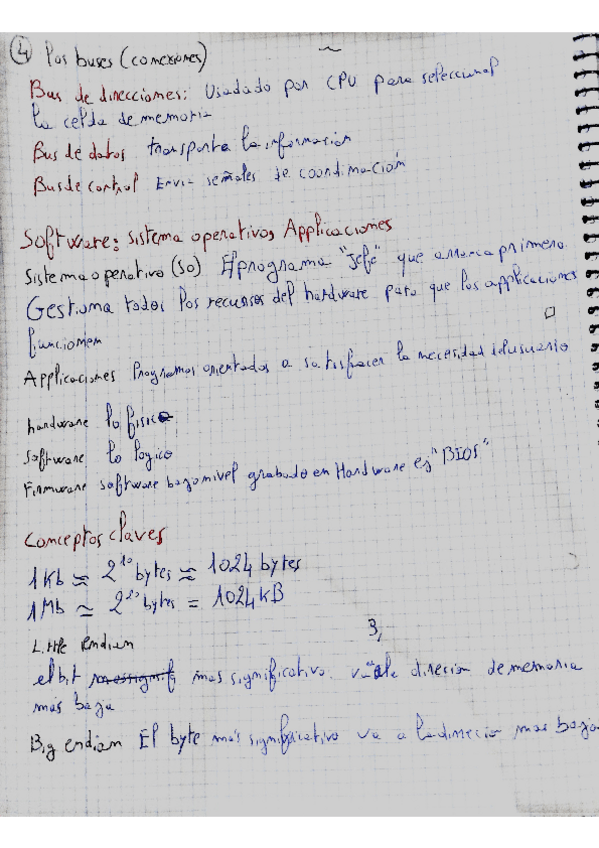 4 los buses (conexiones)
Bus de direcciones: Usadado por CPU para seleccionar
la celda de memoria
Bus de datos transporta la información
Bus de control Envia señales de coordinación
Software: sistema operativos, Applicaciones
Sistema operativo (SO) El programa "Jefe" que arranca primero.
Gestiona todos los recursos del hardware para que los applicaciones
funcionen
Applicaciones Programas orientados a satisfacer la necesidad del usuario
hardware lo fisico
software lo logico
Firmware software bajo nivel grabado en Hardware ej "BIOS"
Conceptos claves
1 Kb ≈ 2^10 bytes ≈ 1024 bytes
1 Mb ≃ 2^20 bytes = 1024 kB
Little Endian
el bit mas significativo va a la direcion de memoria
mas baja
Big endian El byte más significativo va a la direccion mas baja